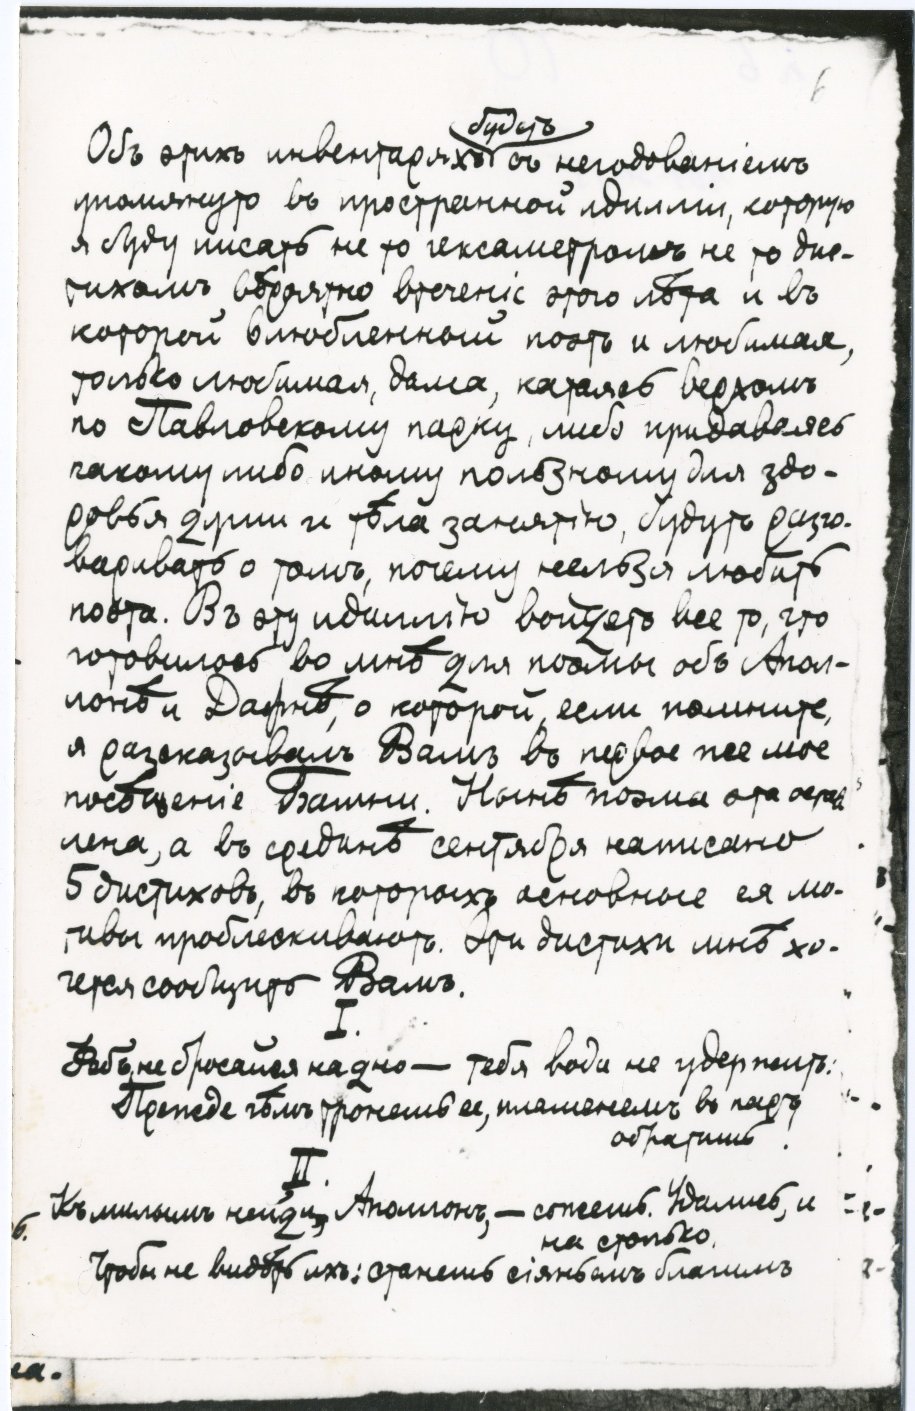 6
будетъ
Объ этихъ инвентаряхъ съ негодованіемъ
упомянуто въ пространной идилліи, которую
я буду писать не то гексаметромъ не то дис-
тихомъ вѣроятно втеченіе этого лѣта и въ
которой влюбленный поэтъ и любимая,
только любимая, дама, катаясь верхомъ
по Павловскому парку, либо придаваясь
какому либо иному полѣзному для здо-
ровья души и тѣла занятію, будутъ разго-
варивать о томъ, почему нельзя любить
поэта. Въ эту идиллію войдетъ все то, что
готовилось во мнѣ для поэмы объ Апол-
лонѣ и Дафнѣ, о которой, если помните,
я разсказывалъ Вамъ въ первое же мое
посѣщеніе Башни. Нынѣ поэма эта остав
лена, а въ срединѣ сентября написано
5 дистиховъ, въ которыхъ основные ея мо-
тивы проблескиваютъ. Эти дистихи мнѣ хо-
чется сообщить Вамъ.
I.
Фебъ, не бросайся на дно — тебя вода не удержитъ:
Прежде чѣмъ тронешь ее, пламенемъ въ паръ
обратишь.
II.
Къ милымъ нейди, Аполлонъ, — сожжешь. Удались, и
на столько,
Чтобы не видѣть ихъ: станешь сіяньемъ благимъ